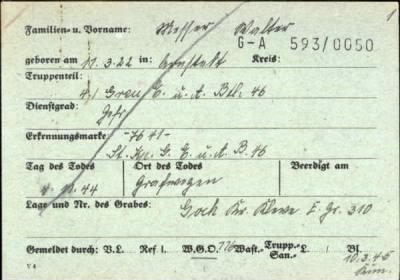 1
Familien- u. Vorname: Messer Walter
G-A 593/0050
geboren am 11.3.22 in: Arnstadt Kreis:
Truppenteil:
4./ Gren. E. u. A. Btl. 46
Dienstgrad:
Gefr.
Erkennungsmarke: -7641-
St. Kp. G. E. u. A. B. 46
Tag des Todes Ort des Todes Beerdigt am
11.44 Grafwegen
Lage und Nr. des Grabes: Goch Kr. Kleve E. Gr. 310
Gemeldet durch: V.L. Ref I. W.G.O. Wast.- Trupp.- L. Bl.
San.-
10.3.45
V 4